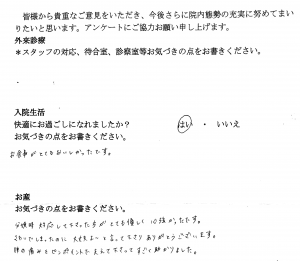 皆様から貴重なご意見をいただき、今後さらに院内態勢の充実に努めてまい
りたいと思います。アンケートにご協力お願い申し上げます。
外来診療
*スタッフの対応、待合室、診察室等お気づきの点をお書きください。
入院生活
快適にお過ごしになれましたか? はい ・ いいえ
お気づきの点をお書きください。
お食事がとてもおいしかったです。
お産
お気づきの点をお書きください。
分娩時対応して下さった方がとても優しく心強かったです。
大丈夫よーと言って下さりありがとうございます。
腰の痛みもピンポイントで押して下さってすごく助かりました。